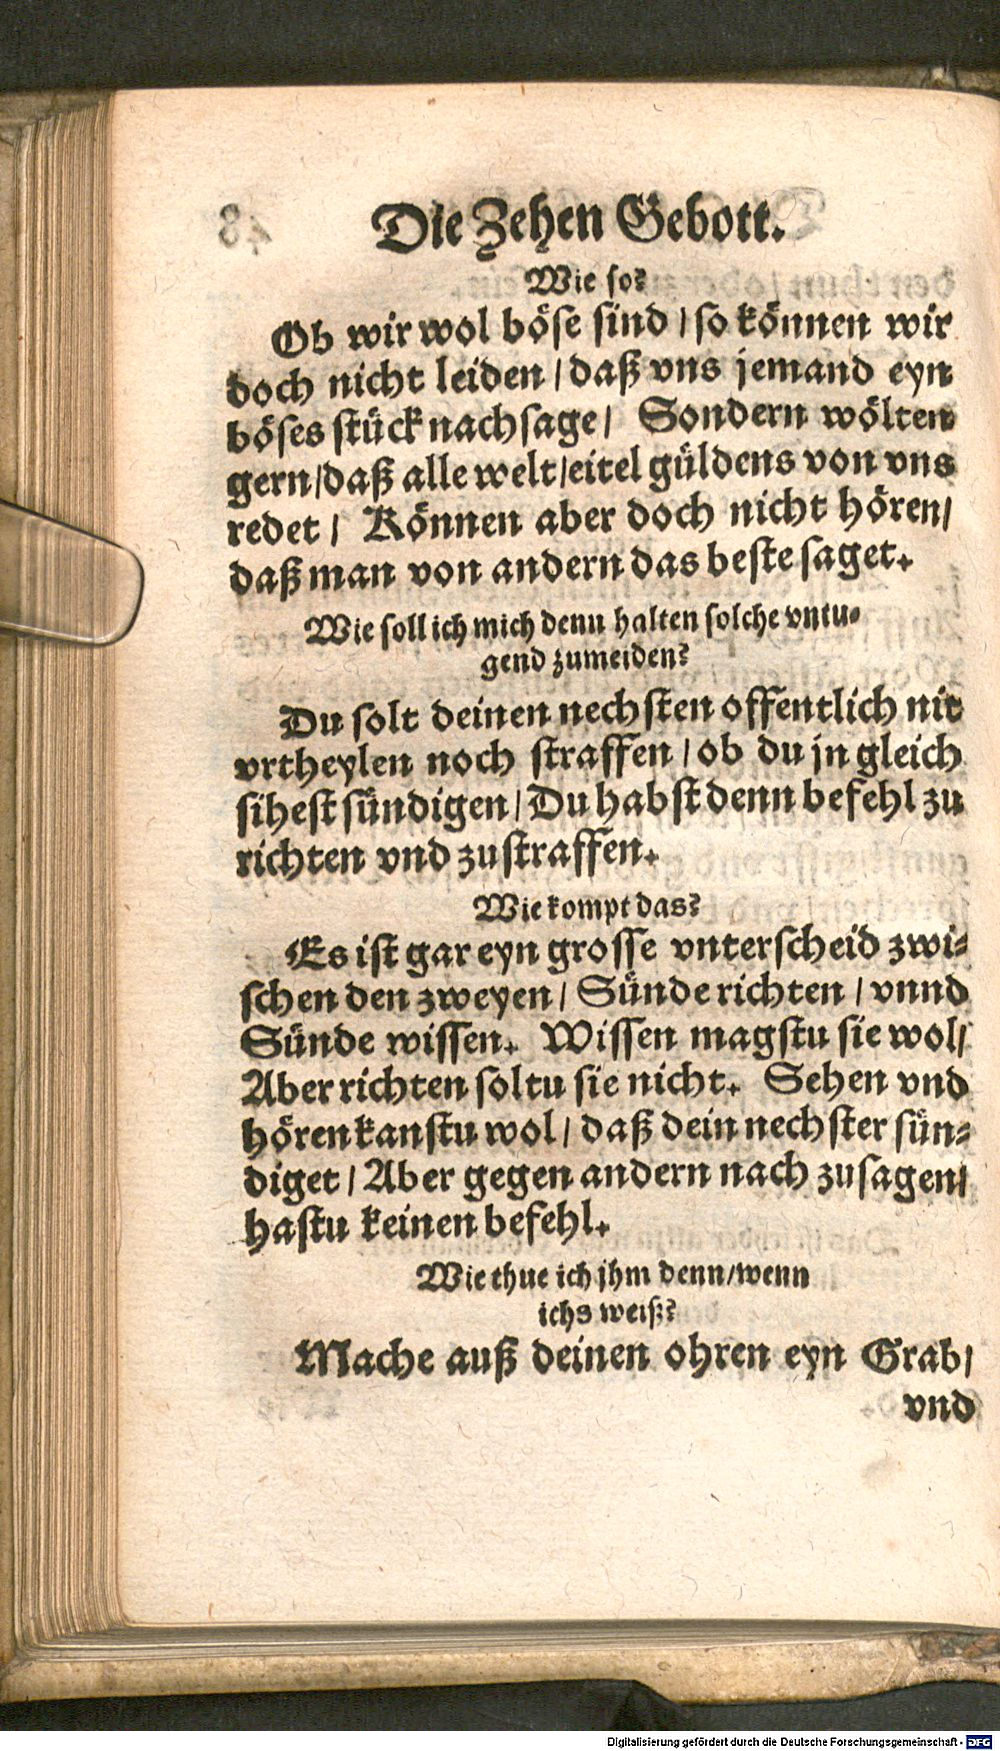 Die Zehen Gebott.
Wie so?
Ob wir wol böse sind / so können wir
doch nicht leiden / daß vns jemand eyn
böses stück nachsage / Sondern wölten
gern / daß alle welt / eitel güldens von vns
redet / Können aber doch nicht hören /
daß man von andern das beste saget.
Wie soll ich mich denn halten solche vntu-
gend zumeiden?
Du solt deinen nechsten offentlich nit
vrtheylen noch straffen / ob du jn gleich
sihest sündigen / Du habst denn befehl zu
richten vnd zustraffen.
Wie kompt das?
Es ist gar eyn grosse vnterscheid zwi-
schen den zweyen / Sünde richten / vnnd
Sünde wissen. Wissen magstu sie wol /
Aber richten soltu sie nicht. Sehen vnd
hören kanstu wol / daß dein nechster sün-
diget / Aber gegen andern nach zusagen /
hastu keinen befehl.
Wie thue ich jhm denn / wenn
ichs weiß?
Mache auß deinen ohren eyn Grab /
vnd
Digitalisierung gefördert durch die Deutsche Forschungsgemeinschaft - DFG